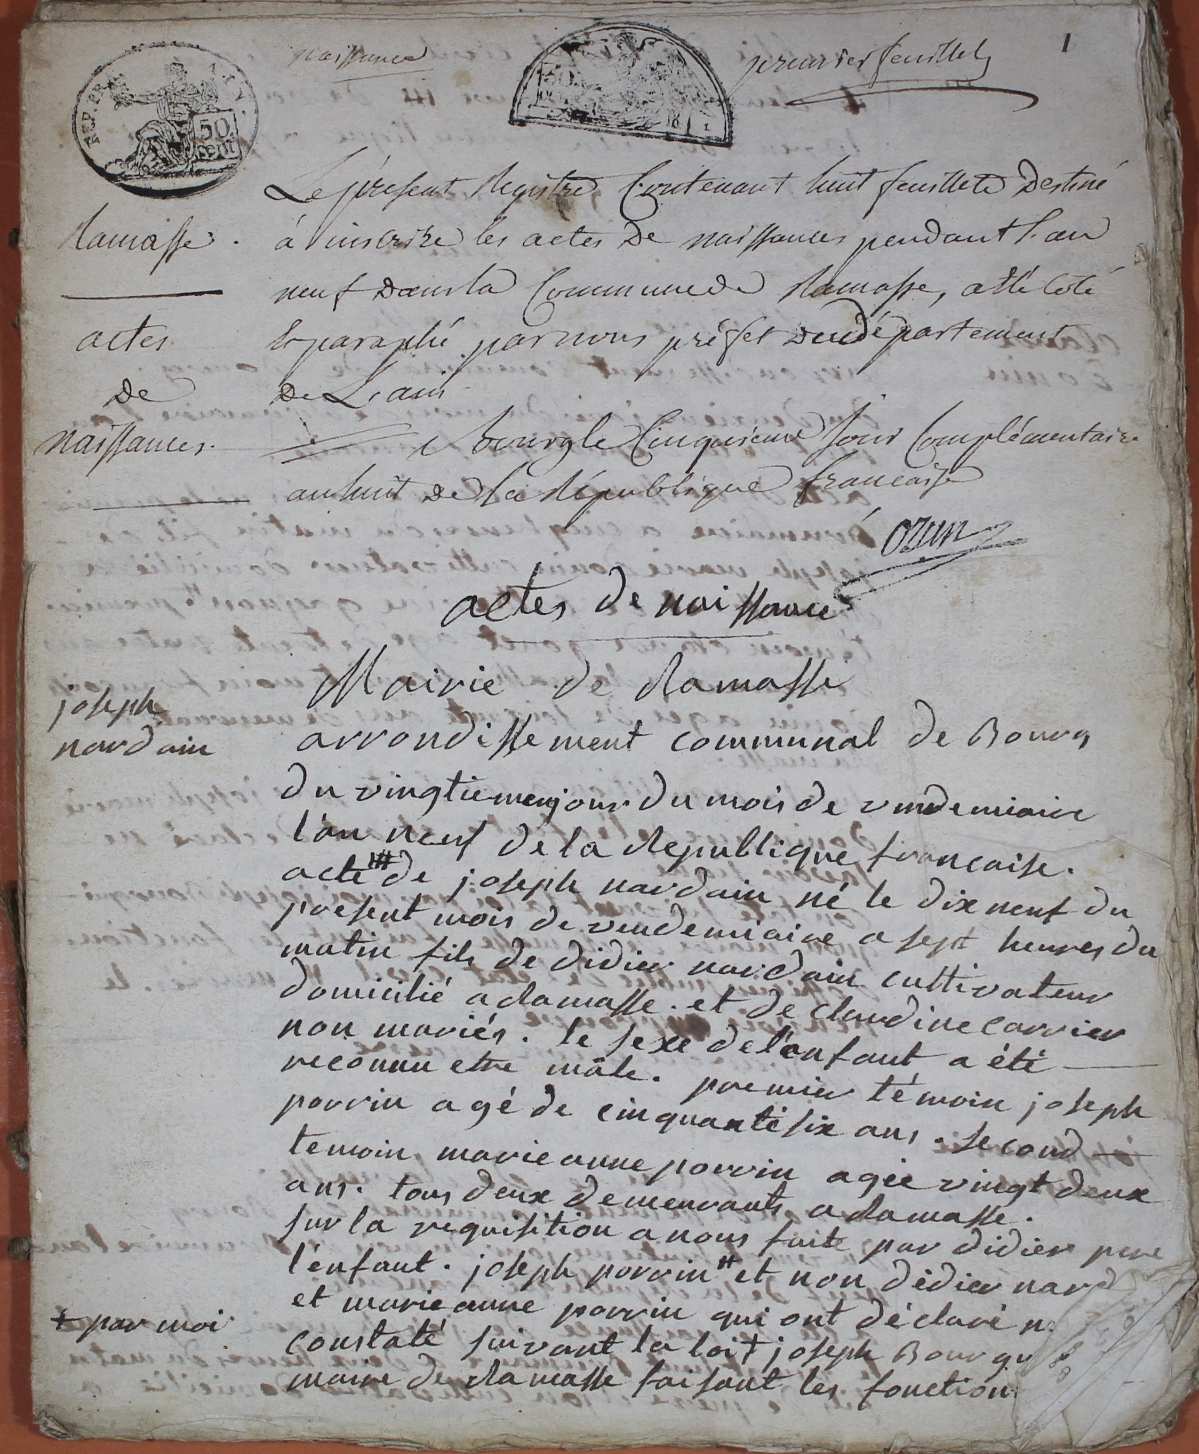 naissance
premier feuillet
1
REP. FRA
50 cent
Le présent Registre Contenant huit feuillets Destiné
Ramasse. à inscrire les actes De naissances pendant l'an
neuf dans la Commune de Ramasse, a été Coté
actes & paraphé par nous préfet du département
de De L'ain
naissances. a bourg le Cinquieme Jour Complémentaire
an huit de la République française
ozun
actes de naissance
Mairie de Ramasse
joseph
nardain
arrondissement communal de Bourg
du vingtieme jour du mois de vendemiaire
l'an neuf de la Republique francaise.
acte de joseph nardain né le dix neuf du
present mois de vendemiaire a sept heures du
matin fils de didier nardain cultivateur
domicilié a Ramasse. et de claudine carrier
non mariés. le sexe de l'enfant a été
reconnu etre mâle. premier témoin joseph
porrin agé de cinquante six ans. second
temoin marie anne porrin agée vingt deux
ans. tous deux demeurants a Ramasse.
sur la requisition a nous faite par didier pere
l'enfant. joseph porrin # et non dédier nard
et marie anne porrin qui ont déclaré
+ par moi
constaté suivant la loi + joseph Bourgu
maire de Ramasse faisant les fonction